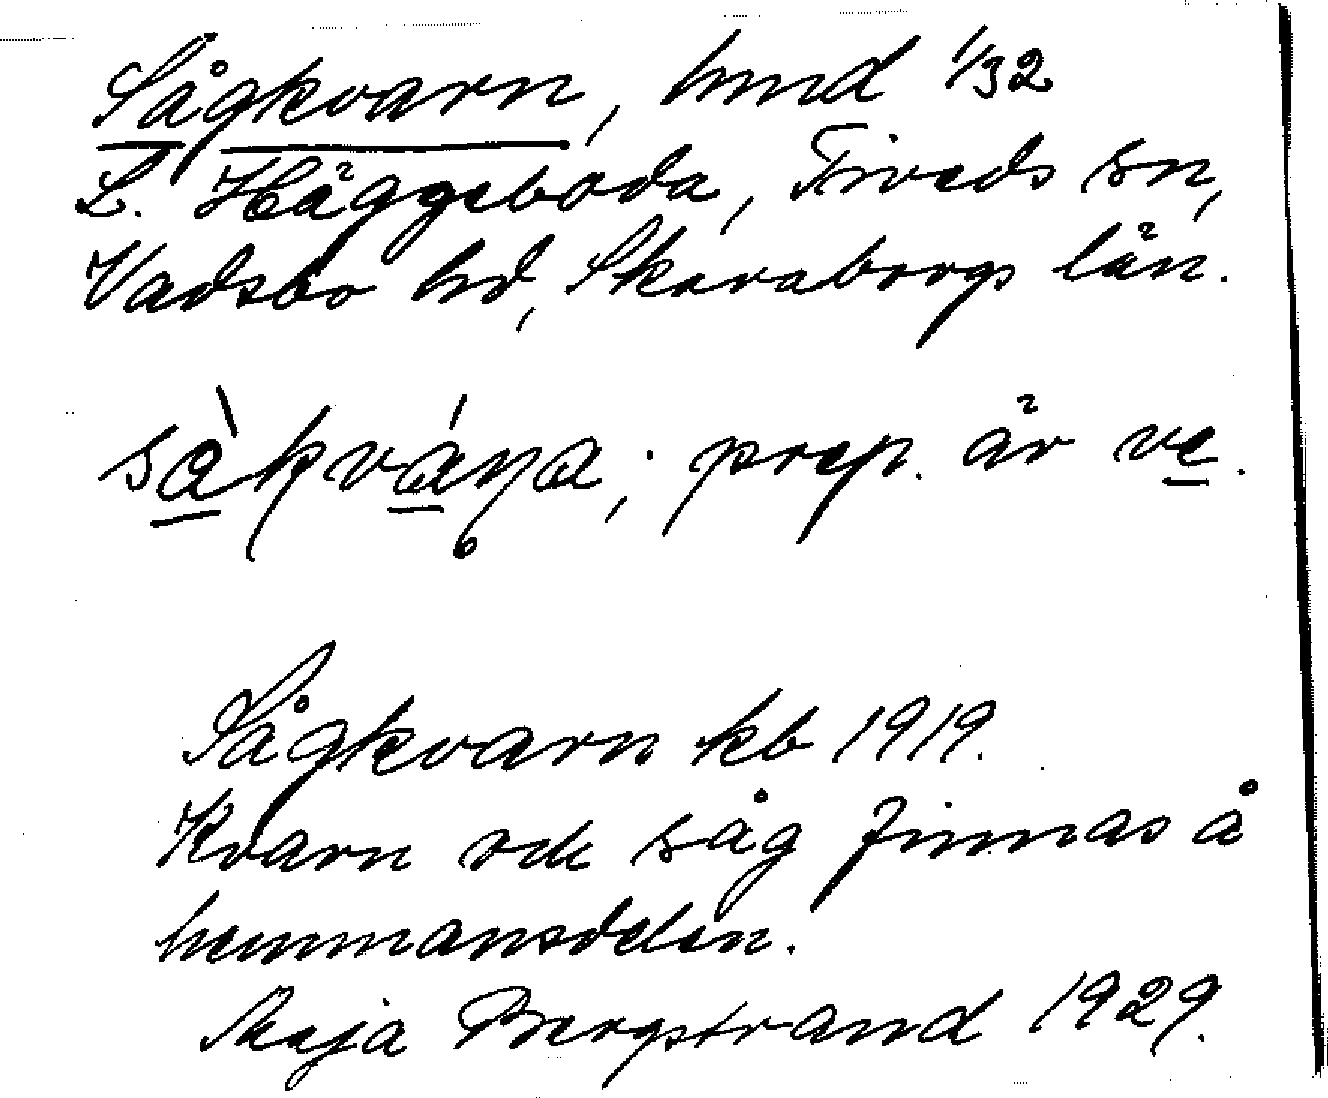 Sågkvarn, hmd 1/32
L. Häggeboda, Tiveds sn,
Vadsbo hd, Skaraborgs län.
sàkvána; prep. är ve.
Sågkvarn kb 1919.
Kvarn och såg finnas å
hemmansdelen.
Maja Bergstrand 1929.